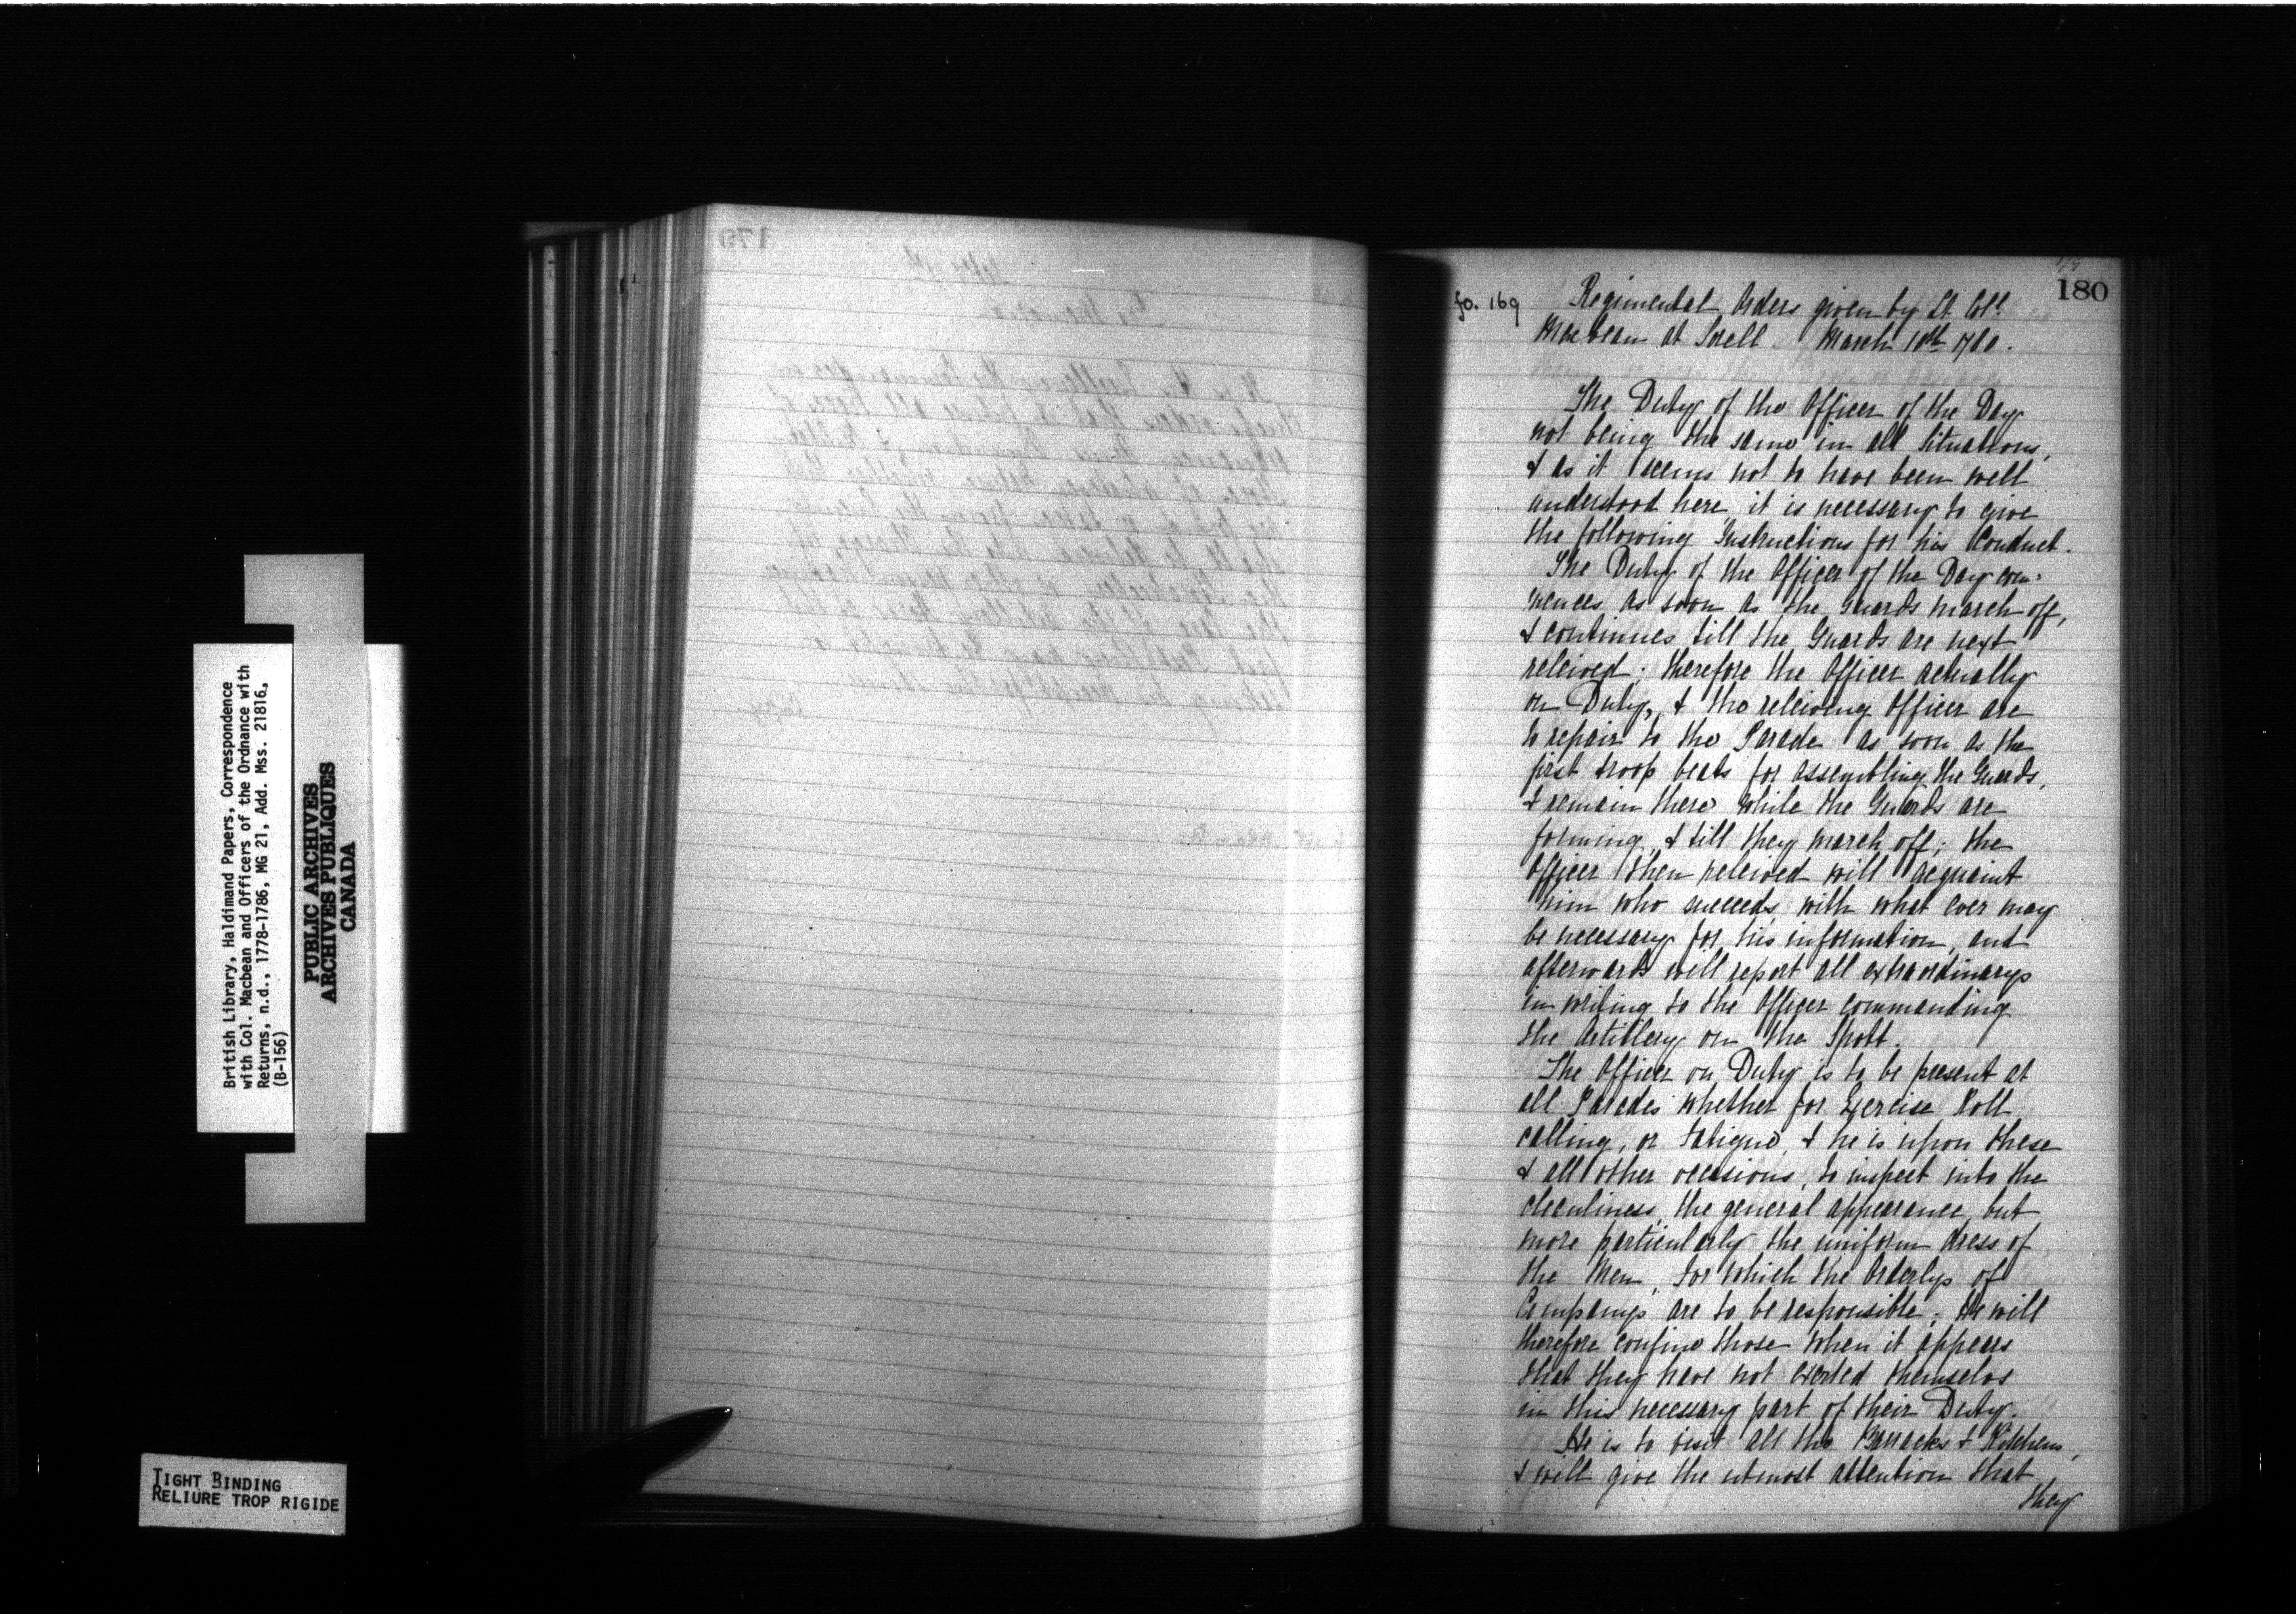 British Library, Haldimand Papers, Correspondence
with Col. Macbean and Officers of the Ordnance with
Returns, n.d., 1778-1786, MG 21, Add. Mss. 21816,
(B-156)
PUBLIC ARCHIVES
ARCHIVES PUBLIQUES
CANADA
TIGHT BINDING
RELIURE TROP RIGIDE
179
180
fo. 169
Regimental Orders given by Lt Coll.
Macbean at Sorell March 10th 1780.
The Duty of the Officer of the Day
not being the same in all Situations,
& as it seems not to have been well
understood here, it is necessary to give
the following Instructions for his Conduct.
The Duty of the Officer of the Day com=
mences as soon as the Guards march off,
& continues till the Guards are next
releived; therefore the Officer actually
on Duty, & the releiving Officer are
to repair to the Parade as soon as the
first troop beats for assembling the Guards,
& remain there while the Guards are
forming, & till they march off; the
Officer then releived will acquaint
him who succeeds, with what ever may
be necessary for his information, and
afterwards will report all extraordinarys
in writing to the Officer commanding
the Artillery on the Spott.
The Officer on Duty is to be present at
all Parades whether for Exercise Roll
calling, or Fatigue, & he is upon these
& all other occasions, to inspect into the
cleanliness, the general appearance, but
more particularly the uniform dress of
the Men, for which the Orderlys of
Companys are to be responsible; He will
therefore confine those when it appears
that they have not exerted themselves
in this necessary part of their Duty.
He is to visit all the Barracks & Kitchens,
& will give the utmost attention that
they